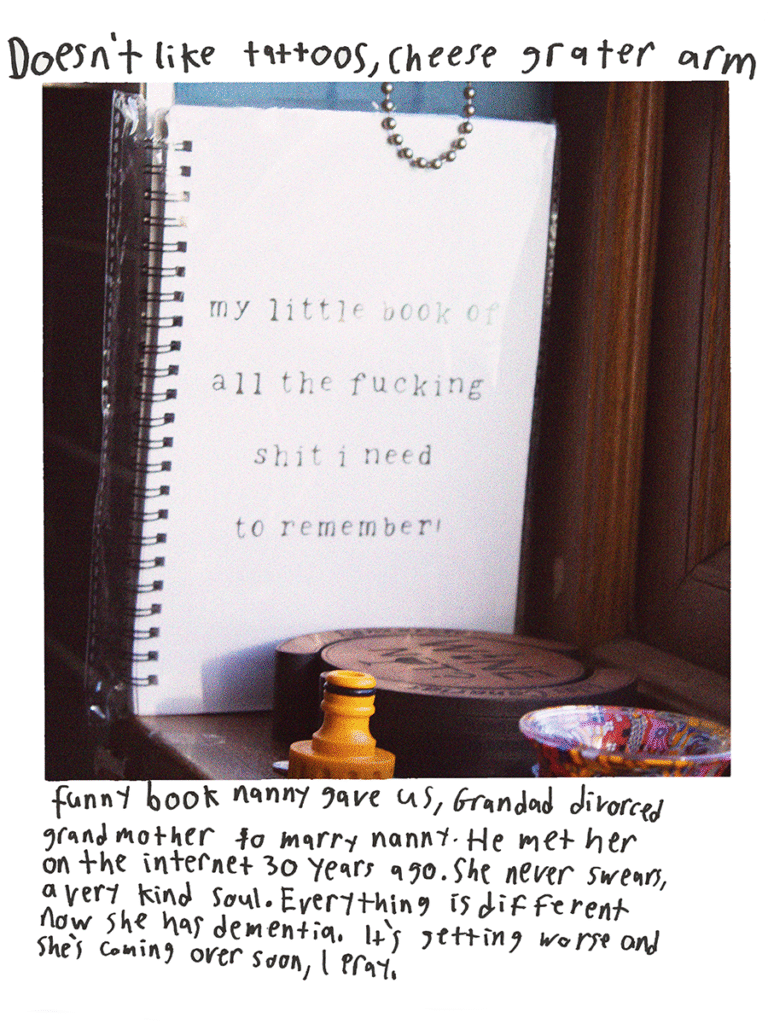 Doesn't like tattoos, cheese grater arm
my little book of
all the fucking
shit i need
to remember!
funny book nanny gave us, Grandad divorced
grandmother to marry nanny. He met her
on the internet 30 years ago. She never swears,
a very kind soul. Everything is different
now she has dementia. It's getting worse and
she's coming over soon, I pray.